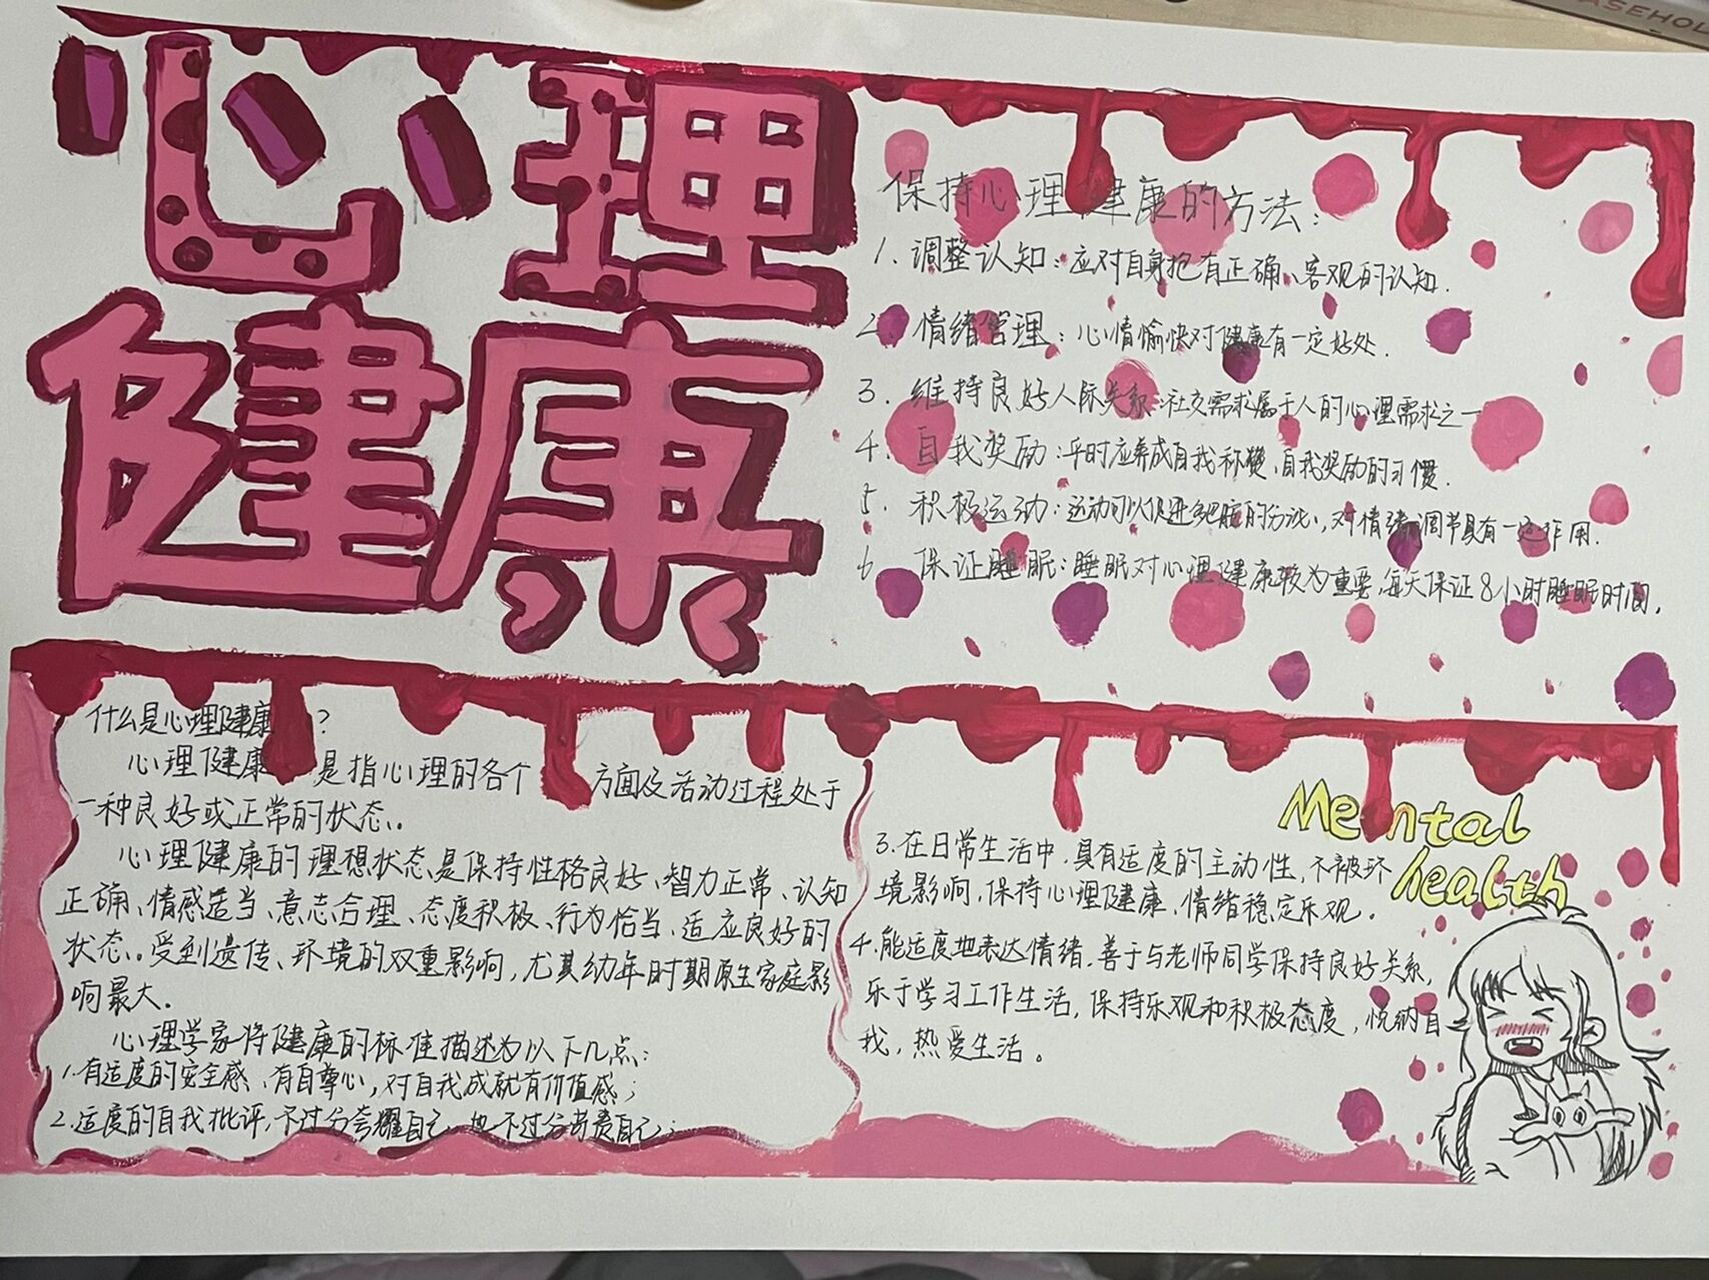 心理
健康
保持心理健康的方法:
1. 调整认知:应对自身抱有正确、客观的认知.
2. 情绪管理:心情愉快对健康有一定好处.
3. 维持良好人际关系:社交需求属于人的心理需求之一
4. 自我奖励:平时应养成自我称赞、自我奖励的习惯.
5. 积极运动:运动可以促进多巴胺的分泌,对情绪调节具有一定作用.
6 保证睡眠:睡眠对心理健康较为重要,每天保证8小时睡眠时间.
什么是心理健康?
心理健康是指心理的各个方面及活动过程处于
一种良好或正常的状态.
心理健康的理想状态是保持性格良好、智力正常、认知
正确、情感适当、意志合理、态度积极、行为恰当、适应良好的
状态。受到遗传、环境的双重影响,尤其幼年时期原生家庭影
响最大.
心理学家将健康的标准描述为以下几点:
1.有适度的安全感、有自尊心,对自我成就有价值感;
2.适度的自我批评,不过分夸耀自己,也不过分苛责自己;
Mental
health
3.在日常生活中,具有适度的主动性,不被环
境影响,保持心理健康、情绪稳定乐观。
4.能适度地表达情绪,善于与老师同学保持良好关系,
乐于学习工作生活,保持乐观和积极态度,悦纳自
我,热爱生活。